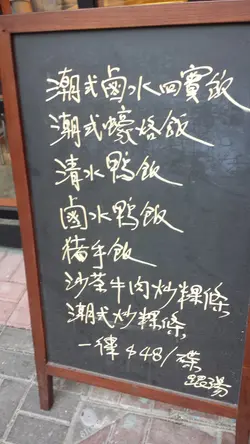 潮式鹵水四寶飯
潮式蠔烙飯
清水鴨飯
鹵水鴨飯
豬手飯
沙茶牛肉炒粿條
潮式炒粿條
一律$48/碟
跟湯